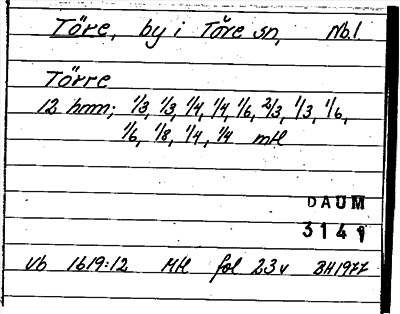 Töre, by i Töre sn, Nb.l.
Törre
12 hmn; 1/3, 1/3, 1/4, 1/4, 1/6, 2/3, 1/3, 1/6,
1/6, 1/8, 1/4, 1/4 mtl
DAUM
3141
Vb 1619:12 Mtl fol 23v BH1977